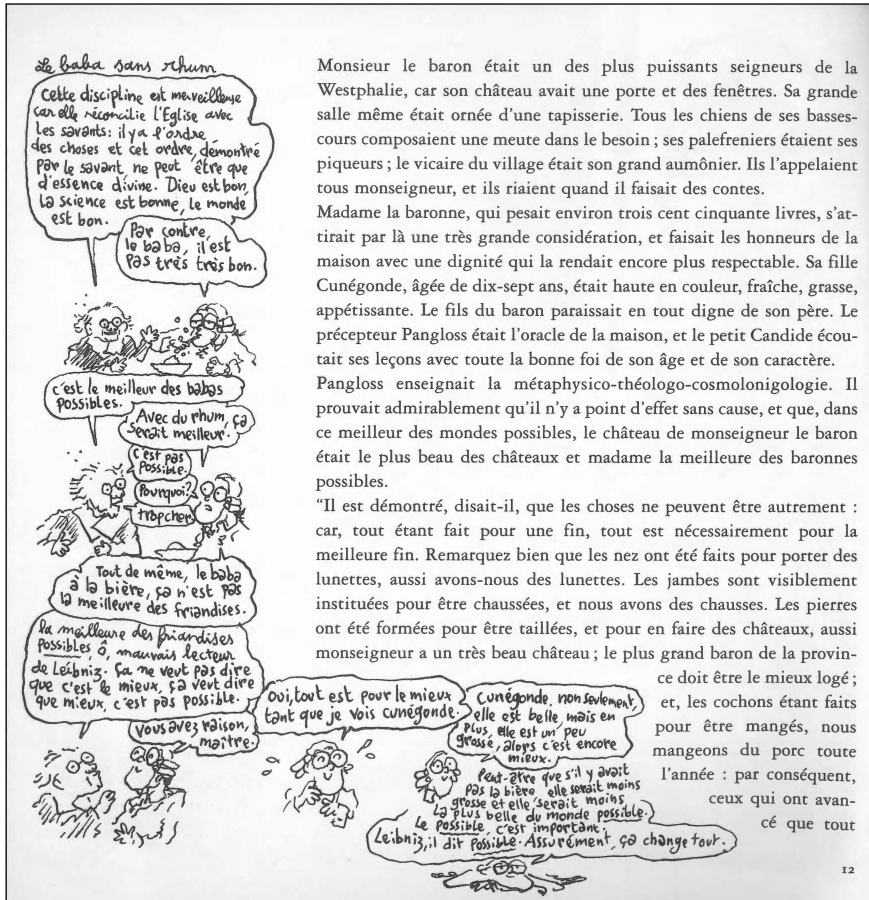 Le baba sans rhum
Cette discipline est merveilleuse
car elle réconcilie l'Eglise avec
les savants: il y a l'ordre
des choses et cet ordre, démontré
par le savant ne peut être que
d'essence divine. Dieu est bon,
la science est bonne, le monde
est bon.
Par contre,
le baba, il est
pas très très bon.
c'est le meilleur des babas
possibles.
Avec du rhum, ça
serait meilleur.
C'est pas
possible.
Pourquoi?
trop cher.
Tout de même, le baba
à la bière, ça n'est pas
la meilleure des friandises.
la meilleure des friandises
possibles ô, mauvais lecteur
de Leibniz. ça ne veut pas dire
que c'est le mieux, ça veut dire
que mieux, c'est pas possible.
vous avez raison,
maître.
Oui, tout est pour le mieux
tant que je vois cunégonde.
Cunégonde, non seulement,
elle est belle, mais en
plus, elle est un peu
grosse, alors c'est encore
mieux.
Peut-être que s'il y avait
pas la bière elle serait moins
grosse et elle serait moins
la plus belle du monde possible.
Le possible, c'est important.
Leibniz, il dit possible. Assurément, ça change tout.
Monsieur le baron était un des plus puissants seigneurs de la
Westphalie, car son château avait une porte et des fenêtres. Sa grande
salle même était ornée d'une tapisserie. Tous les chiens de ses basses-
cours composaient une meute dans le besoin ; ses palefreniers étaient ses
piqueurs ; le vicaire du village était son grand aumônier. Ils l'appelaient
tous monseigneur, et ils riaient quand il faisait des contes.
Madame la baronne, qui pesait environ trois cent cinquante livres, s'at-
tirait par là une très grande considération, et faisait les honneurs de la
maison avec une dignité qui la rendait encore plus respectable. Sa fille
Cunégonde, âgée de dix-sept ans, était haute en couleur, fraîche, grasse,
appétissante. Le fils du baron paraissait en tout digne de son père. Le
précepteur Pangloss était l'oracle de la maison, et le petit Candide écou-
tait ses leçons avec toute la bonne foi de son âge et de son caractère.
Pangloss enseignait la métaphysico-théologo-cosmolonigologie. Il
prouvait admirablement qu'il n'y a point d'effet sans cause, et que, dans
ce meilleur des mondes possibles, le château de monseigneur le baron
était le plus beau des châteaux et madame la meilleure des baronnes
possibles.
"Il est démontré, disait-il, que les choses ne peuvent être autrement :
car, tout étant fait pour une fin, tout est nécessairement pour la
meilleure fin. Remarquez bien que les nez ont été faits pour porter des
lunettes, aussi avons-nous des lunettes. Les jambes sont visiblement
instituées pour être chaussées, et nous avons des chausses. Les pierres
ont été formées pour être taillées, et pour en faire des châteaux, aussi
monseigneur a un très beau château ; le plus grand baron de la provin-
ce doit être le mieux logé ;
et, les cochons étant faits
pour être mangés, nous
mangeons du porc toute
l'année : par conséquent,
ceux qui ont avan-
cé que tout
12